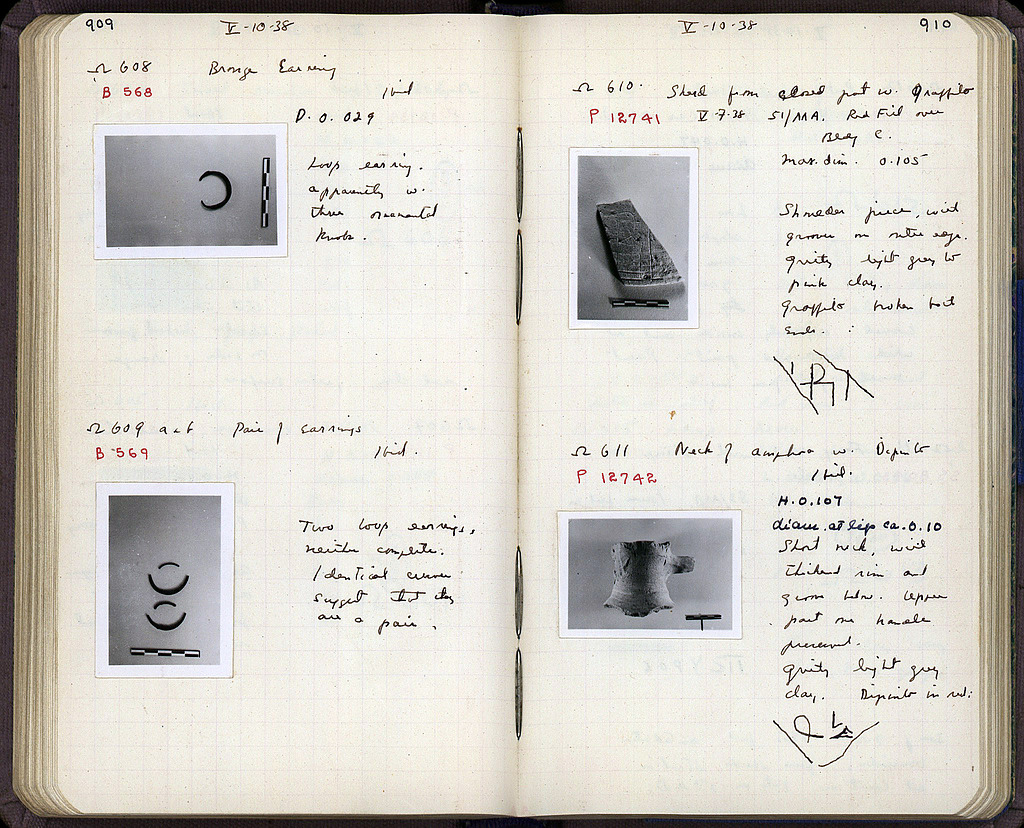 909
V-10-38
Ω 608 Bronze Earring
B 568
Ibid
D. 0.029
Loop earring.
apparently w.
three ornamental
knobs.
Ω 609 a+b Pair of earrings
B 569
Ibid.
Two loop earrings,
neither complete.
Identical curves
suggest that they
are a pair.
V-10-38
910
Ω 610. Sherd from closed pot w. Graffito
P 12741 V-7-38 51/MA. Red Fill over
Bldg C.
Max. dim. 0.105
Shoulder piece, with
groove on outer edge.
gritty light grey to
pink clay.
Graffito broken both
ends.
Ω 611 Neck of amphora w. Dipinto
P 12742
Ibid.
H. 0.107
diam. at lip ca. 0.10
Short neck, with
thickened rim and
groove below. Upper
part one handle
preserved.
gritty light grey
clay. Dipinto in red: